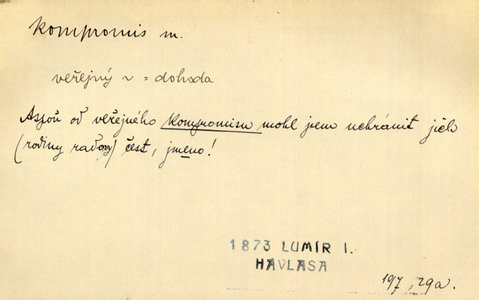 kompromis m.
veřejný ~ = dohoda
Aspoň od veřejného kompromisu mohl jsem uchránit jich
(rodiny) čest, jméno!
1873 LUMÍR I.
HAVLASA
197, 29a.